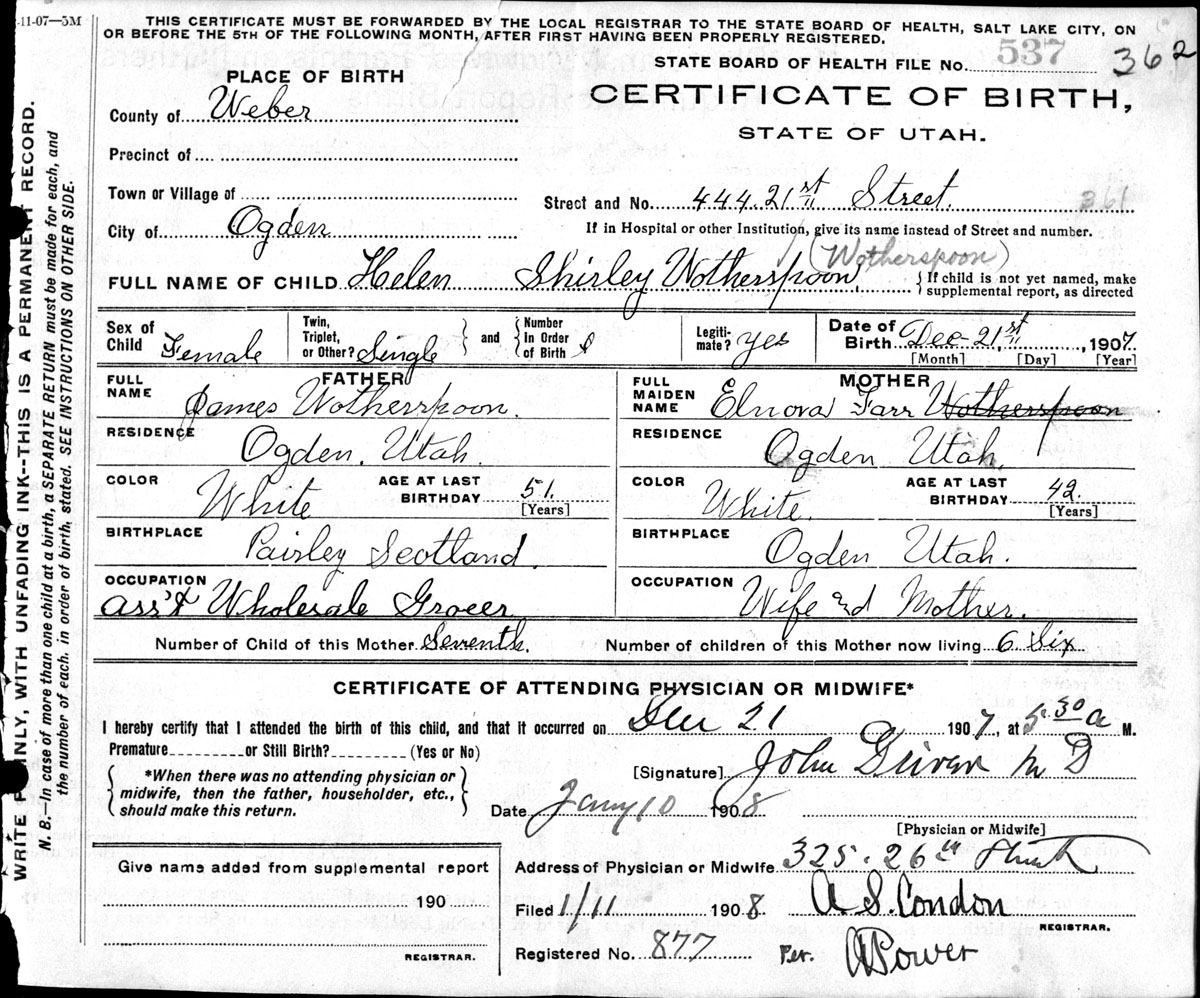 -11-07—5M
THIS CERTIFICATE MUST BE FORWARDED BY THE LOCAL REGISTRAR TO THE STATE BOARD OF HEALTH, SALT LAKE CITY, ON
OR BEFORE THE 5TH OF THE FOLLOWING MONTH, AFTER FIRST HAVING BEEN PROPERLY REGISTERED.
STATE BOARD OF HEALTH FILE NO. 537 362
PLACE OF BIRTH
CERTIFICATE OF BIRTH,
STATE OF UTAH.
County of Weber
Precinct of
Town or Village of
Street and No. 444 21st Street. 361
City of Ogden
If in Hospital or other Institution, give its name instead of Street and number.
(Wotherspoon)
FULL NAME OF CHILD Helen Shirley Wotherspoon, { If child is not yet named, make
supplemental report, as directed
Sex of Child Female
Twin, Triplet, or Other? Single } and { Number In Order of Birth
Legiti-mate? Yes
Date of Birth Dec 21st, 1907
[Month] [Day] [Year]
FATHER
FULL NAME James Wotherspoon.
RESIDENCE Ogden. Utah.
COLOR White AGE AT LAST BIRTHDAY 51. [Years]
BIRTHPLACE Paisley Scotland.
OCCUPATION Ass't Wholesale Grocer
MOTHER
FULL MAIDEN NAME Elnora Farr Wotherspoon
RESIDENCE Ogden Utah.
COLOR White. AGE AT LAST BIRTHDAY 42. [Years]
BIRTHPLACE Ogden Utah.
OCCUPATION Wife and Mother.
Number of Child of this Mother Seventh. Number of children of this Mother now living 6 Six
CERTIFICATE OF ATTENDING PHYSICIAN OR MIDWIFE*
I hereby certify that I attended the birth of this child, and that it occurred on Dec 21 1907, at 5.30 a M.
Premature or Still Birth? (Yes or No)
{ *When there was no attending physician or
midwife, then the father, householder, etc.,
should make this return. }
[Signature] John Driver M D
Date Jany 10 1908
[Physician or Midwife]
Address of Physician or Midwife 325. 26th Street
Give name added from supplemental report
190
REGISTRAR.
Filed 1/11 1908 A. S. Condon
REGISTRAR.
Registered No. 877 Per. Power
WRITE PLAINLY, WITH UNFADING INK--THIS IS A PERMANENT RECORD.
N. B.—In case of more than one child at a birth, a SEPARATE RETURN must be made for each, and
the number of each, in order of birth, stated. SEE INSTRUCTIONS ON OTHER SIDE.